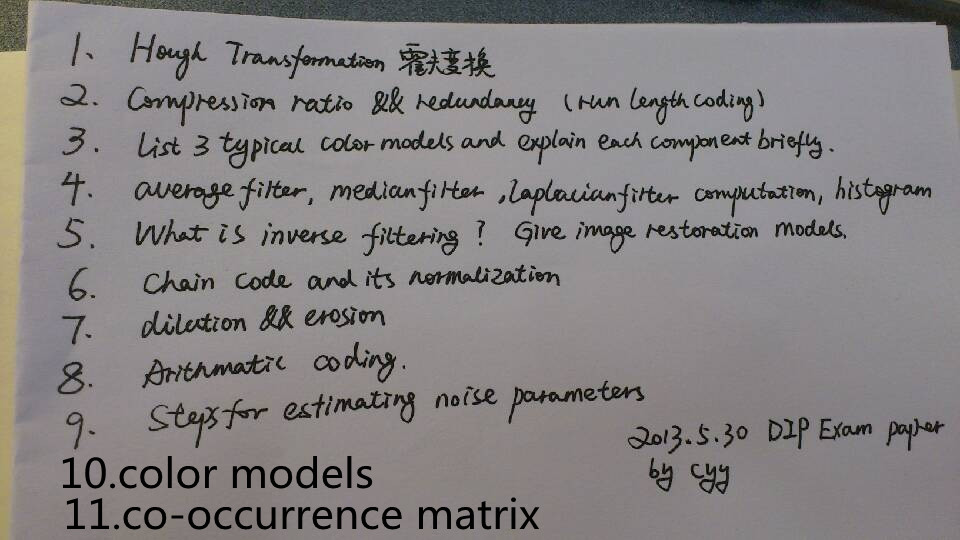 1、 Hough Transformation 霍夫变换
2. Compression ratio && redundancy (run length coding)
3. List 3 typical color models and explain each component briefly.
4. average filter, median filter, laplacian filter computation, histogram
5. What is inverse filtering? Give image restoration models.
6. Chain code and its normalization
7. dilation && erosion
8. Arithmatic coding.
9. Steps for estimating noise parameters
2013.5.30 DIP Exam paper
by cyy
10.color models
11.co-occurrence matrix